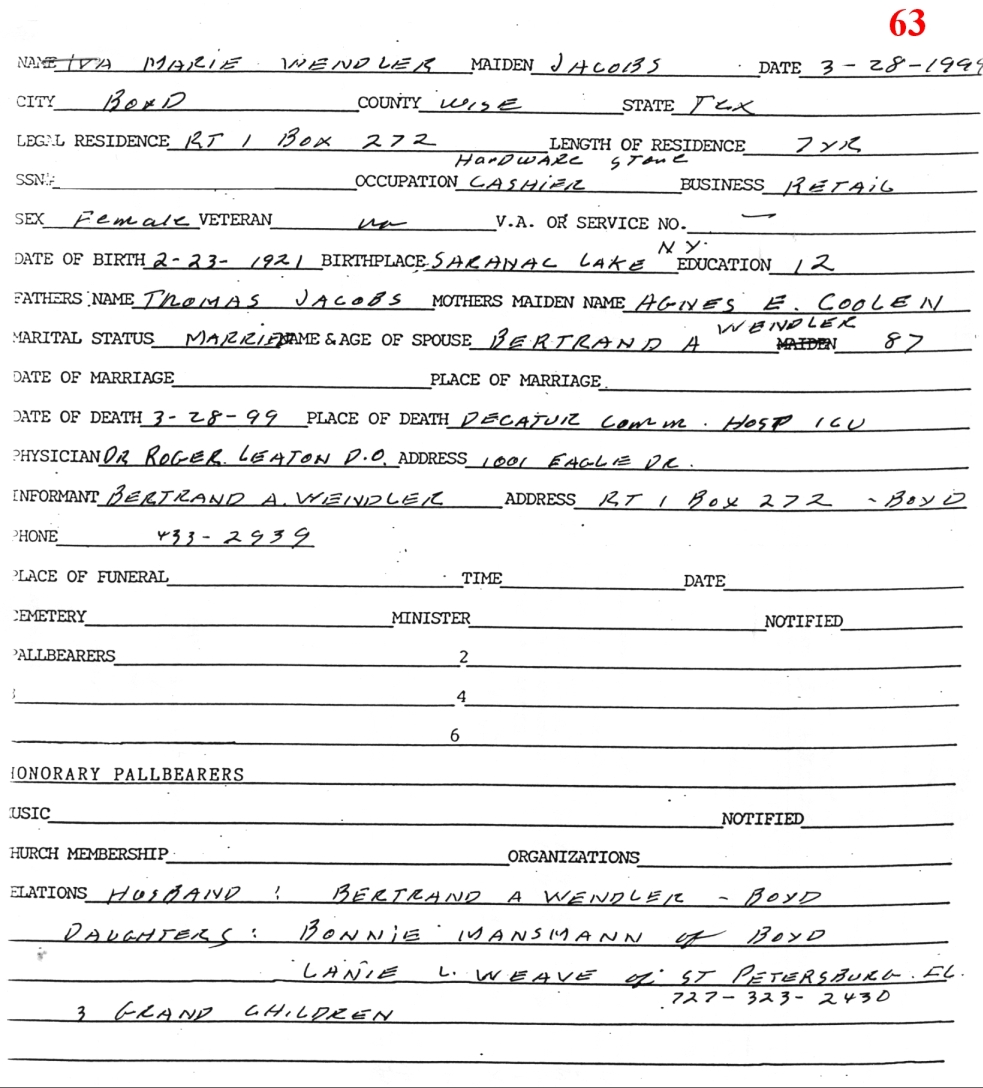 63
NAME IVA MARIE WENDLER MAIDEN JACOBS DATE 3-28-1999
CITY BOYD COUNTY WISE STATE TEX
LEGAL RESIDENCE RT 1 BOX 272 LENGTH OF RESIDENCE 7 YR
HARDWARE STORE
SSN# OCCUPATION CASHIER BUSINESS RETAIL
SEX Female VETERAN no V.A. OR SERVICE NO. —
N.Y.
DATE OF BIRTH 2-23-1921 BIRTHPLACE SARANAC LAKE EDUCATION 12
FATHERS NAME THOMAS JACOBS MOTHERS MAIDEN NAME AGNES E. COOLEN
WENDLER
MARITAL STATUS MARRIED NAME & AGE OF SPOUSE BERTRAND A MAIDEN 87
DATE OF MARRIAGE PLACE OF MARRIAGE
DATE OF DEATH 3-28-99 PLACE OF DEATH DECATUR Comm. HOSP ICU
PHYSICIAN DR ROGER LEATON D.O. ADDRESS 1001 EAGLE DR.
INFORMANT BERTRAND A. WENDLER ADDRESS RT 1 Box 272 - BOYD
PHONE 433-2939
PLACE OF FUNERAL TIME DATE
CEMETERY MINISTER NOTIFIED
PALLBEARERS 2
4
6
HONORARY PALLBEARERS
MUSIC NOTIFIED
CHURCH MEMBERSHIP ORGANIZATIONS
RELATIONS HUSBAND : BERTRAND A WENDLER - BOYD
DAUGHTERS: BONNIE MANSMANN of BOYD
LANIE L. WEAVE of ST PETERSBURG. FL.
727-323-2430
3 GRAND CHILDREN